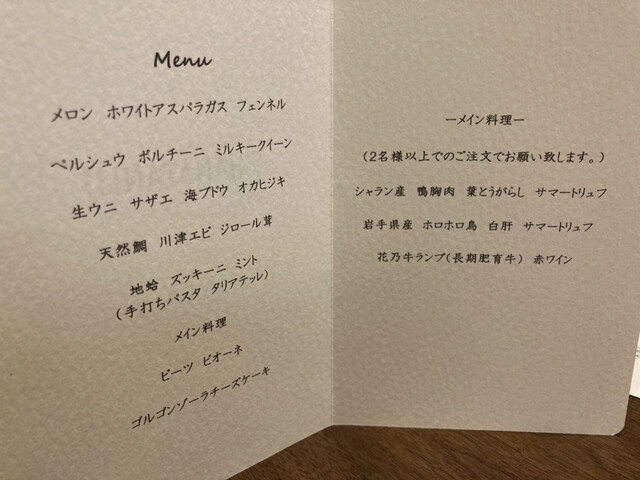 Menu
メロン ホワイトアスパラガス フェンネル
ペルシュウ ポルチーニ ミルキークイーン
生ウニ サザエ 海ブドウ オカヒジキ
天然鯛 川津エビ ジロール茸
地蛤 ズッキーニ ミント
(手打ちパスタ タリアテッレ)
メイン料理
ビーツ ピオーネ
ゴルゴンゾーラチーズケーキ
ーメイン料理ー
(2名様以上でのご注文でお願い致します。)
シャラン産 鴨胸肉 葉とうがらし サマートリュフ
岩手県産 ホロホロ鳥 白肝 サマートリュフ
花乃牛ランプ(長期肥育牛) 赤ワイン